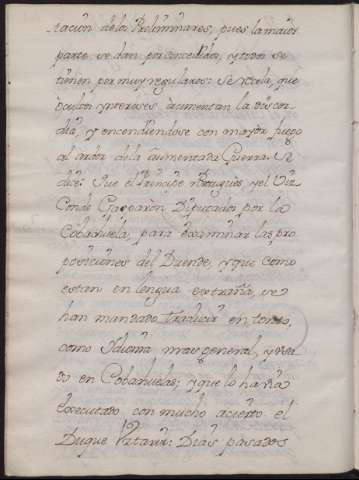 tacion de los Preliminares, pues la maior
parte se dan por concedidos, y todos se
tienen por muy regulares: Se recela, que
ocultos yntereses aumentan la discor-
dia, y encendiendose con mayor fuego
al ardor de la aumentada Guerra. Se
dice: Que el Principe Portugues, y el Viz
Conde Diputados por la
Cobachuela, para examinar las pro
posiciones del Duende, y que como
estan en lengua extraña, se
han mandado traducir en tonto,
como Ydioma mas general, y usa-
do en Cobachuelas; y que lo havia
executado con mucho acierto el
Duque Dias pasados